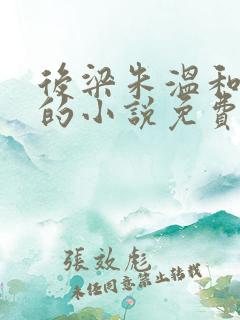 後梁朱溫和
的小說免費
張效彪
未经同意禁止转载